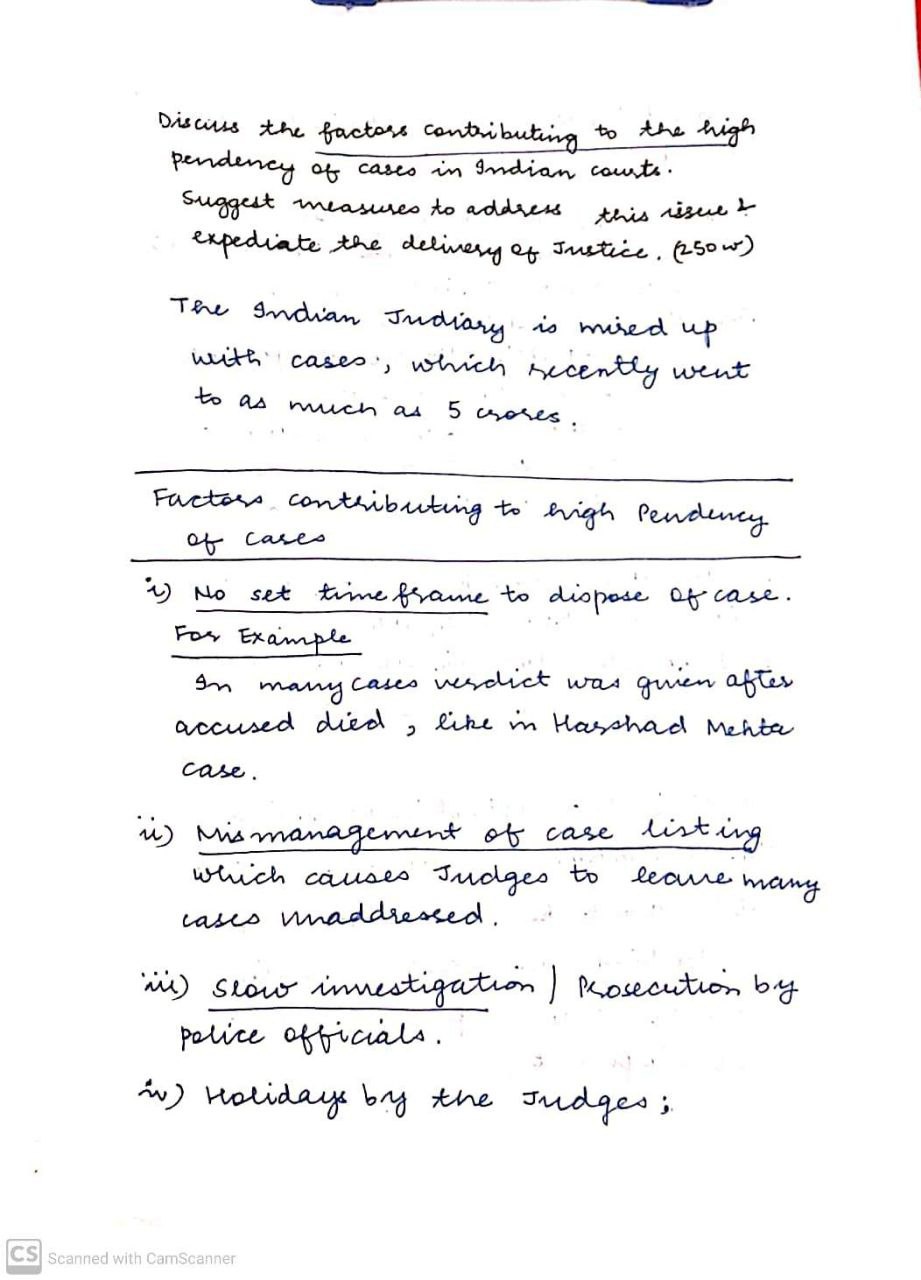 Discuss the factors contributing to the high
pendency of cases in Indian courts.
Suggest measures to address this issue &
expediate the delivery of Justice. (250w)
The Indian Judiary is mired up
with cases, which recently went
to as much as 5 crores.
Factors contributing to high Pendency
of cases
i) No set time frame to dispose of case.
For Example
In many cases verdict was given after
accused died, like in Harshad Mehta
case.
ii) Mismanagement of case listing
which causes Judges to leave many
cases unaddressed.
iii) Slow investigation | Prosecution by
police officials.
iv) Holidays by the Judges;
CS Scanned with CamScanner